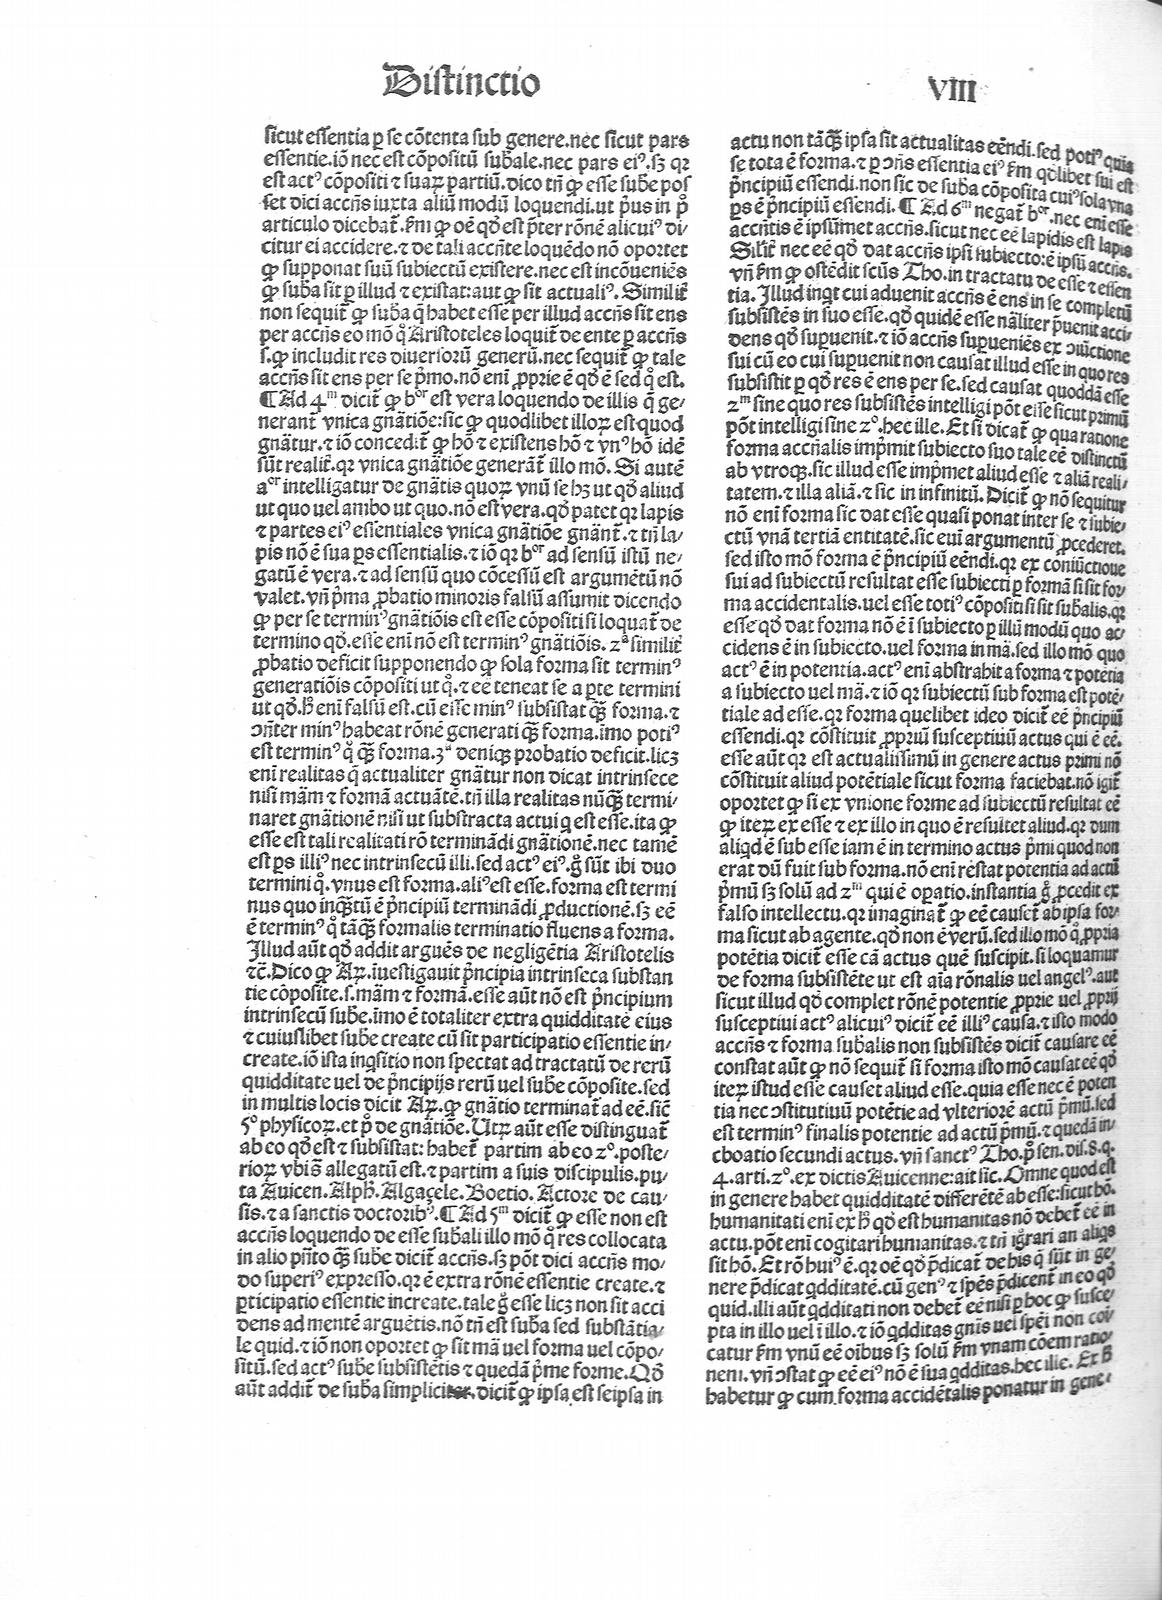 Distinctio
VIII
sicut essentia ꝑ se cõtenta sub genere.nec sicut pars
essentie.iõ nec est cõpositũ sub̃ale.nec pars eiꝰ.sꝫ qꝛ
est actꝰ cõpositi ⁊ suaꝝ partiũ.dico tñ ꝙ esse sub̃e pos
set dici accñs iuxta aliũ modũ loquendi.ut p̃us in pͦ
articulo dicebat̃.fm̃ ꝙ oẽ qd̃ est p̃ter rõnẽ alicuiꝰ di/
citur ei accidere.⁊ de tali accñte loquẽdo nõ oportet
ꝙ supponat suũ subiectũ existere.nec est incõueniẽs
ꝙ sub̃a sit ꝑ illud ⁊ existat:aut ꝙ sit actualiꝰ.Similit̃
non sequit̃ ꝙ sub̃a q̃ habet esse per illud accñs sit ens
per accñs eo mõ qͦ Aristoteles loquit̃ de ente ꝑ accñs
s.ꝙ includit res diuersorũ generũ.nec sequit̃ ꝙ tale
accñs sit ens per se p̃mo.nõ enĩ ꝓprie ẽ qd̃ ẽ sed qͦ est.
¶Ad 4ᵐ dicit̃ ꝙ bᵒʳ est vera loquendo de illis q̃ ge/
nerant̃ vnica gnãtiõe:sic ꝙ quodlibet illoꝝ est quod
gnãtur.⁊ iõ concedit̃ ꝙ hõ ⁊ existens hõ ⁊ vnꝰ hõ idẽ
sũt realit̃.qꝛ vnica gnãtiõe generãt̃ illo mõ. Si autẽ
aᵒʳ intelligatur de gnãtis quoꝝ vnũ se hꝫ ut qd̃ aliud
ut quo uel ambo ut quo.nõ est vera.qd̃ patet qꝛ lapis
⁊ partes eiꝰ essentiales vnica gnãtiõe gnãnt̃.⁊ tñ la/
pis nõ ẽ sua ꝑs essentialis.⁊ iõ qꝛ bᵒʳ ad sensũ istũ ne/
gatũ ẽ vera.⁊ ad sensũ quo cõcessũ est argumẽtũ nõ
valet.vñ p̃ma ꝓbatio minoris falsũ assumit dicendo
ꝙ per se terminꝰ gnãtiõis est esse cõpositi si loquat̃ de
termino qd̃.esse enĩ nõ est terminꝰ gnãtiõis. 2ᵃ similit̃
ꝓbatio deficit supponendo ꝙ sola forma sit terminꝰ
generatiõis cõpositi ut qͦ.⁊ eẽ teneat se a ꝑte termini
ut qd̃.h̃ enĩ falsũ est.cũ esse minꝰ subsistat q̃ꝫ forma.⁊
ↄñter minꝰ habeat rõnẽ generati q̃ꝫ forma.imo potiꝰ
est terminꝰ qͦ q̃ꝫ forma.3ᵃ deniqꝫ probatio deficit.licꝫ
enĩ realitas q̃ actualiter gnãtur non dicat intrinsece
nisi mãm ⁊ formã actuãtẽ.tñ illa realitas nũq̃ꝫ termi/
naret gnãtionẽ nisi ut substracta actui q est esse.ita ꝙ
esse est tali realitati rõ terminãdi gnãtionẽ.nec tamẽ
est ꝑs illiꝰ nec intrinsecũ illi.sed actꝰ eiꝰ.g̃ sũt ibi duo
termini qͦ.vnus est forma.aliꝰ est esse.forma est termi
nus quo inq̃tũ ẽ p̃ncipiũ terminãdi ꝓductionẽ.sꝫ eẽ
ẽ terminꝰ qͦ tãq̃ꝫ formalis terminatio fluens a forma.
Illud aũt qd̃ addit arguẽs de negligẽtia Aristotelis
⁊c̃.Dico ꝙ Aꝝ.iuestigauit p̃ncipia intrinseca substan
tie cõposite.s.mãm ⁊ formã.esse aũt nõ est p̃ncipium
intrinsecũ sub̃e.imo ẽ totaliter extra quidditatẽ eius
⁊ cuiuslibet sub̃e create cũ sit participatio essentie in/
create.iõ ista inq̃sitio non spectat ad tractatũ de rerũ
quidditate uel de p̃ncipijs rerũ uel sub̃e cõposite.sed
in multis locis dicit Aꝝ.ꝙ gnãtio terminat̃ ad eẽ.sic̃
5ᵒ physicoꝝ.et pͦ de gnãtiõe.Utꝝ aũt esse distinguat̃
ab eo qd̃ est ⁊ subsistat:habet̃ partim ab eo 2ᵒ.poste/
rioꝝ vbi s̃ allegatũ est.⁊ partim a suis discipulis.pu/
ta Auicen.Alph̃.Algaçele.Boetio.Actore de cau/
sis.⁊ a sanctis doctoribꝰ.¶Ad 5ᵐ dicit̃ ꝙ esse non est
accñs loquendo de esse sub̃ali illo mõ qͦ res collocata
in alio p̃ñto q̃ꝫ sub̃e dicit̃ accñs.sꝫ põt dici accñs mo/
do superiꝰ expresso.qꝛ ẽ extra rõnẽ essentie create.⁊
ꝑticipatio essentie increate.tale g̃ esse licꝫ non sit acci
dens ad mentẽ arguẽtis.nõ tñ est sub̃a sed substãtia/
le quid.⁊ iõ non oportet ꝙ sit mã uel forma uel cõpo/
sitũ.sed actꝰ sub̃e subsistẽtis ⁊ quedã p̃me forme.Qd̃
aũt addit̃ de sub̃a simpliciter.dicit̃ ꝙ ipsa est seipsa in
actu non tãq̃ꝫ ipsa sit actualitas eẽndi.sed potiꝰ quia
se tota ẽ forma.⁊ ꝑ ↄñs essentia eiꝰ fm̃ qd̃libet sui est
p̃ncipiũ essendi.non sic de sub̃a cõposita cuiꝰ sola vna
ꝑs ẽ p̃ncipiũ essendi.¶Ad 6ᵐ negat̃ bᵒʳ.nec enĩ esse
accñtis ẽ ipsũmet accñs.sicut nec eẽ lapidis est lapis
Silit̃ nec eẽ qd̃ dat accñs ipsi subiecto:ẽ ipsũ accñs.
vñ fm̃ ꝙ ostẽdit scũs Tho.in tractatu de esse ⁊ essen
tia.Illud inq̃t cui aduenit accñs ẽ ens in se completũ
subsistẽs in suo esse.qd̃ quidẽ esse nãliter p̃uenit acci/
dens qd̃ supuenit.⁊ iõ accñs supueniẽs ex ↄiũctione
sui cũ eo cui supuenit non causat illud esse in quo res
subsistit ꝑ qd̃ res ẽ ens per se.sed causat quoddã esse
2ᵐ sine quo res subsistẽs intelligi põt esse sicut primũ
põt intelligi sine 2ᵒ.hec ille. Et si dicat̃ ꝙ qua ratione
forma accñalis imp̃mit subiecto suo tale eẽ distinctũ
ab vtroqꝫ.sic illud esse imp̃met aliud esse ⁊ aliã reali/
tatem.⁊ illa aliã.⁊ sic in infinitũ. Dicit̃ ꝙ nõ sequitur
nõ enĩ forma sic dat esse quasi ponat inter se ⁊ subie/
ctũ vnã tertiã entitatẽ.sic enĩ argumentũ ꝓcederet.
sed isto mõ forma ẽ p̃ncipiũ eẽndi.qꝛ ex coniũctione
sui ad subiectũ resultat esse subiecti ꝑ formã si sit for/
ma accidentalis.uel esse totiꝰ cõpositi si sit sub̃alis.qꝛ
esse qd̃ dat forma nõ ẽ ĩ subiecto ꝑ illũ modũ quo ac/
cidens ẽ in subiecto.uel forma in mã.sed illo mõ quo
actꝰ ẽ in potentia.actꝰ enĩ abstrahit a forma ⁊ potẽtia
a subiecto uel mã.⁊ iõ qꝛ subiectũ sub forma est potẽ/
tiale ad esse.qꝛ forma quelibet ideo dicit̃ eẽ p̃ncipiũ
essendi.qꝛ cõstituit ꝓpriũ susceptiuũ actus qui ẽ eẽ.
esse aũt qꝛ est actualissimũ in genere actus primi nõ
cõstituit aliud potẽtiale sicut forma faciebat.nõ igit̃
oportet ꝙ si ex vnione forme ad subiectũ resultat eẽ
ꝙ iteꝝ ex esse ⁊ ex illo in quo ẽ resultet aliud.qꝛ dum
aliq̃d ẽ sub esse iam ẽ in termino actus p̃mi quod non
erat dũ fuit sub forma.nõ enĩ restat potentia ad actũ
p̃mũ sꝫ solũ ad 2ᵐ qui ẽ opatio.instantia g̃ ꝓcedit ex
falso intellectu.qꝛ imaginat̃ ꝙ eẽ causet̃ ab ipsa for/
ma sicut ab agente.qd̃ non ẽ verũ.sed illo mõ qͦ ꝓpria
potẽtia dicit̃ esse cã actus quẽ suscipit.si loquamur
de forma subsistẽte ut est aĩa rõnalis uel angelꝰ.aut
sicut illud qd̃ complet rõnẽ potentie ꝓprie uel ꝓprij
susceptiui actꝰ alicuiꝰ dicit̃ eẽ illiꝰ causa.⁊ isto modo
accñs ⁊ forma sub̃alis non subsistẽs dicit̃ causare eẽ
constat aũt ꝙ nõ sequit̃ si forma isto mõ causat eẽ qd̃
iteꝝ istud esse causet aliud esse.quia esse nec ẽ poten
tia nec ↄstitutiuũ potẽtie ad vlteriorẽ actũ p̃mũ.sed
est terminꝰ finalis potentie ad actũ p̃mũ.⁊ quedã in/
choatio secundi actus.vñ sanctꝰ Tho.pͦ sen.dis.8.q.
4.arti.2ᵒ.ex dictis Auicenne:ait sic.Omne quod est
in genere habet quidditatẽ differẽtẽ ab esse:sicut hõ.
humanitati enĩ ex h̃ qd̃ est humanitas nõ debet̃ eẽ in
actu.põt enĩ cogitari humanitas.⁊ tñ ig̃rari an aliq̃s
sit hõ.Et rõ huiꝰ ẽ.qꝛ oẽ qd̃ p̃dicat̃ de his q̃ sũt in ge/
nere p̃dicat q̃dditatẽ.cũ genꝰ ⁊ sp̃es p̃dicent̃ in eo qd̃
quid.illi aũt q̃dditati non debet̃ eẽ nisi ꝑ hoc ꝙ susce/
pta in illo uel ĩ illo.⁊ iõ q̃dditas gnĩs uel sp̃ei non coĩ/
catur fm̃ vnũ eẽ oĩbus sꝫ solũ fm̃ vnam cõem ratio/
nem.vñ ↄstat ꝙ eẽ eiꝰ nõ ẽ sua q̃dditas.hec ille. Ex h̃
habetur ꝙ cum forma accidẽtalis ponatur in gene/